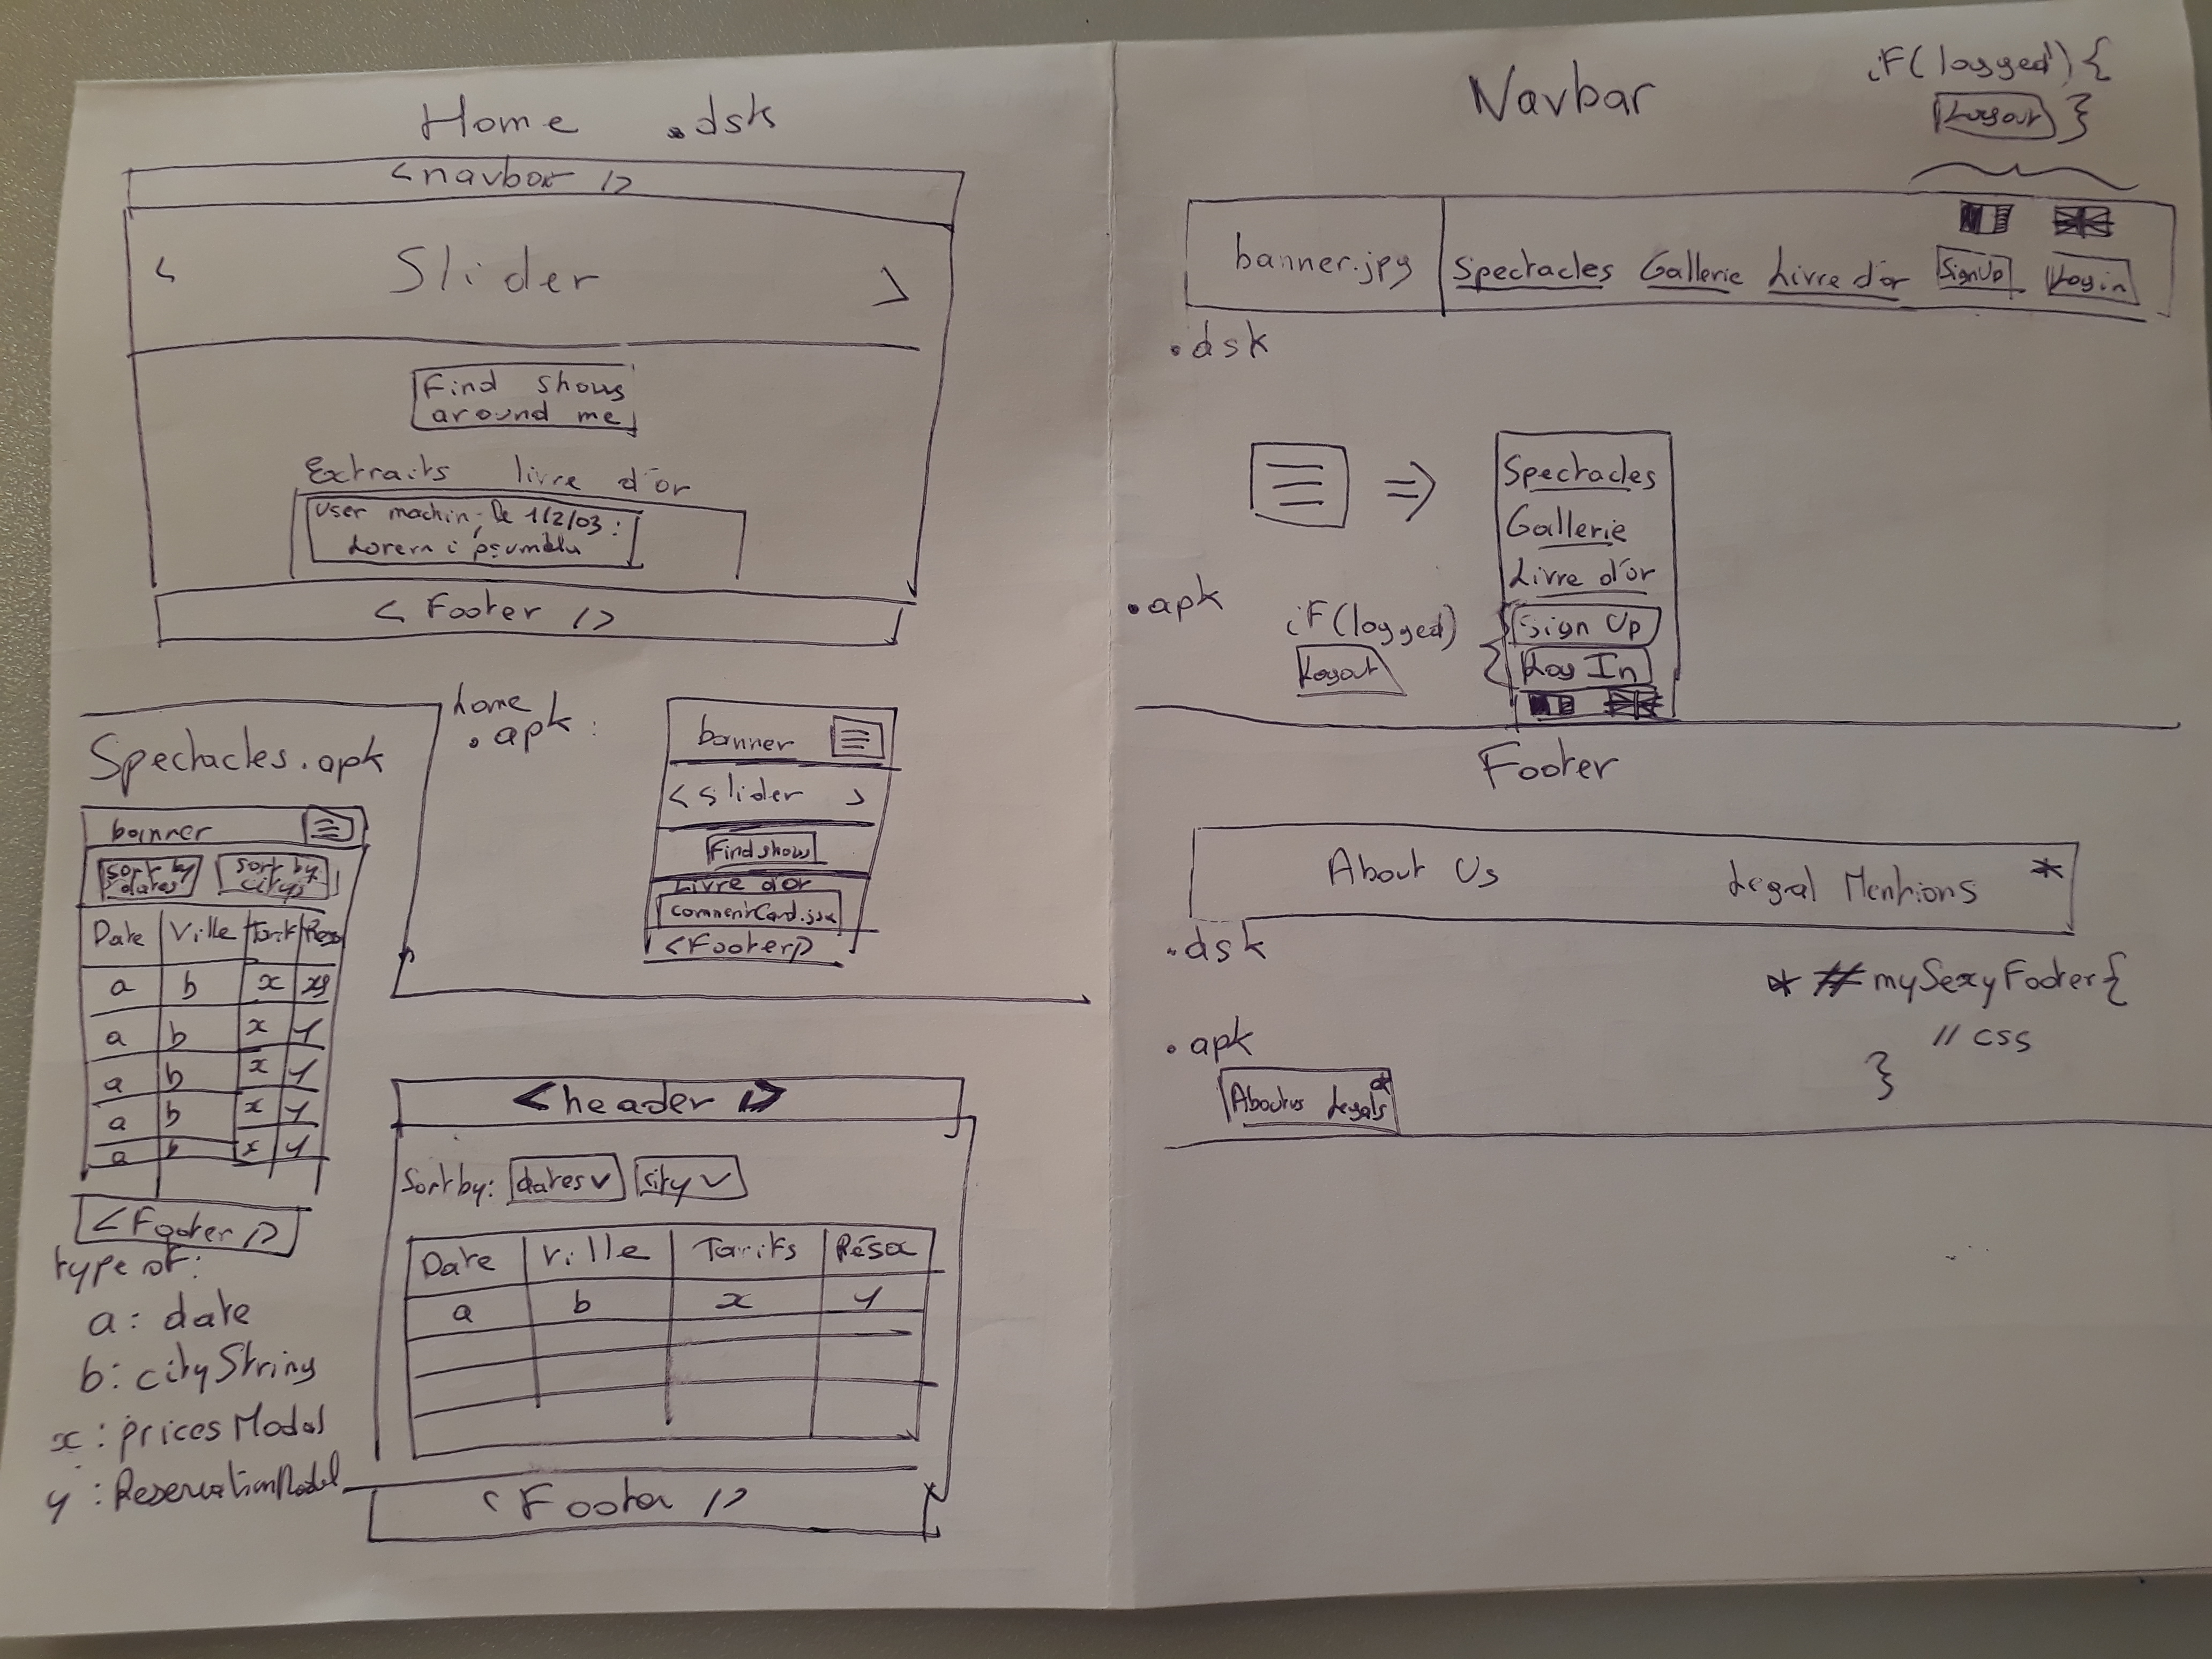 Home .dsk
<navbar />
< Slider >
Find shows
around me
Extraits livre d'or
User machin, le 1/2/03 :
Lorem i psumblu
<Footer />
home
.apk :
banner
<slider >
Find shows
Livre d'or
commentCard.jsx
<Footer/>
Spectacles.apk
banner
sort by
dates
sort by
citys
Date Ville Tarif Resa
a b x y
a b x y
a b x y
a b x y
a b x y
<Footer />
type of:
a : date
b : cityString
x : pricesModal
y : ReservationModal
<header />
Sort by: dates v city v
Date Ville Tarifs Résa
a b x y
<Footer />
Navbar
if(logged){
Logout }
banner.jpg Spectacles Gallerie Livre d'or SignUp Login
.dsk
⇒
Spectacles
Gallerie
Livre d'or
Sign Up
Log In
.apk
if(logged) {
Logout
Footer
About Us Legal Mentions *
.dsk
* #mySexyFooter{
// css
}
.apk
About us Legals *